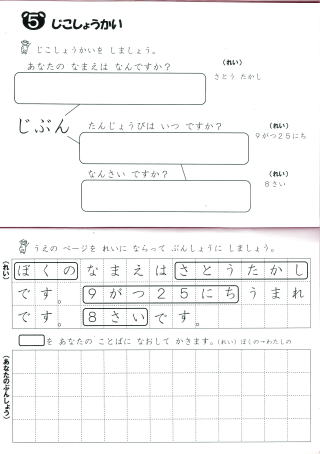 5 じこしょうかい
じこしょうかいを しましょう。
あなたの なまえは なんですか？
(れい)
さとう たかし
じぶん
たんじょうびは いつ ですか？
(れい)
9がつ25にち
なんさい ですか？
(れい)
8さい
うえの ページを れいに ならって ぶんしょうに しましょう。
(れい)
ぼくのなまえはさとうたかし
です。9がつ25にちうまれ
です。8さいです。
を あなたの ことばに なおして かきます。(れい) ぼくの→わたしの
(あなたのぶんしょう)